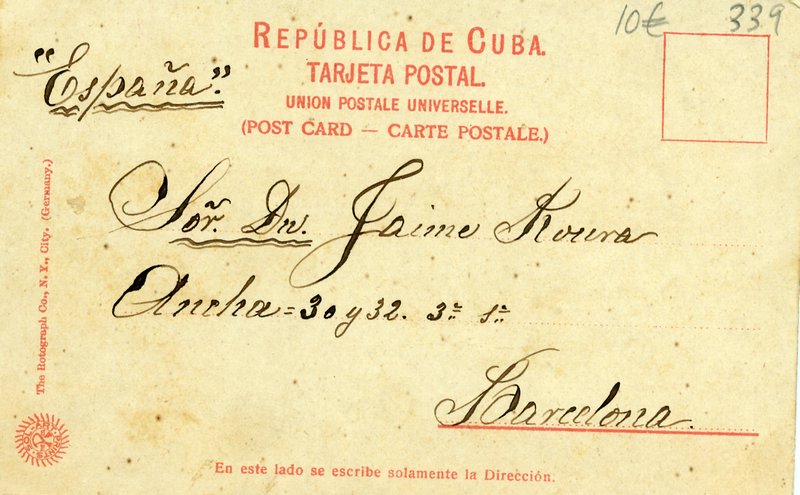 10€ 339
REPÚBLICA DE CUBA.
TARJETA POSTAL.
UNION POSTALE UNIVERSELLE.
(POST CARD — CARTE POSTALE.)
"España".
Sor. Dn. Jaime Roura
Ancha = 30 y 32. 3º 1ª
Barcelona.
The Rotograph Co., N. Y., City. (Germany.)
En este lado se escribe solamente la Dirección.